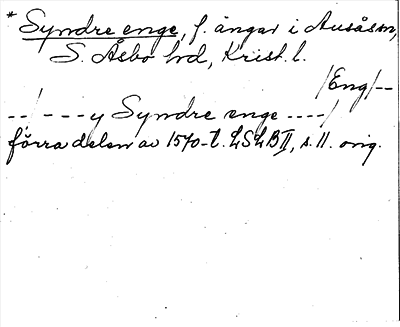 * Syndre enge, f. ängar i Ausåssn,
S. Åsbo hd, Krist. l.
/Eng/--
--/---y Syndre enge ----/
förra delen av 1570-t. LSLB II, s. 11. orig.